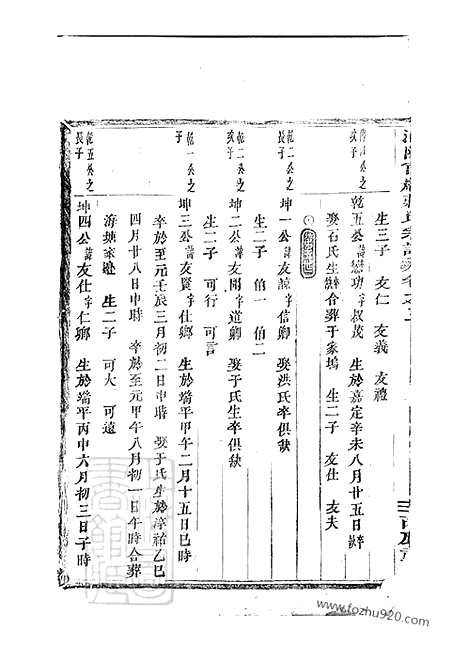 生三子 友仁 友義 友禮
乾五公諱懋功字叔茂 生於嘉定辛未八月廿五日
娶石氏生 合葬于家塢 生二子 友仕 友夫
乾二公之長子 坤一公諱友諒字信卿 娶洪氏卒俱缺
生二子 伯一 伯二
乾二公之次子 坤二公諱友開字道卿 娶于氏生卒俱缺
生二子 可行 可言
乾一公之子 坤三公諱友賢字仕卿 生於端平甲午二月十五日巳時
卒於至元壬辰三月初二日申時 娶于氏生於淳祐乙巳
四月廿八日申時 卒於至元甲午八月初一日午時合葬
游塘家邊 生二子 可大 可遠
乾五公之長子 坤四公諱友仕字仁卿 生於端平丙申六月初三日子時
www.tozhu920.com